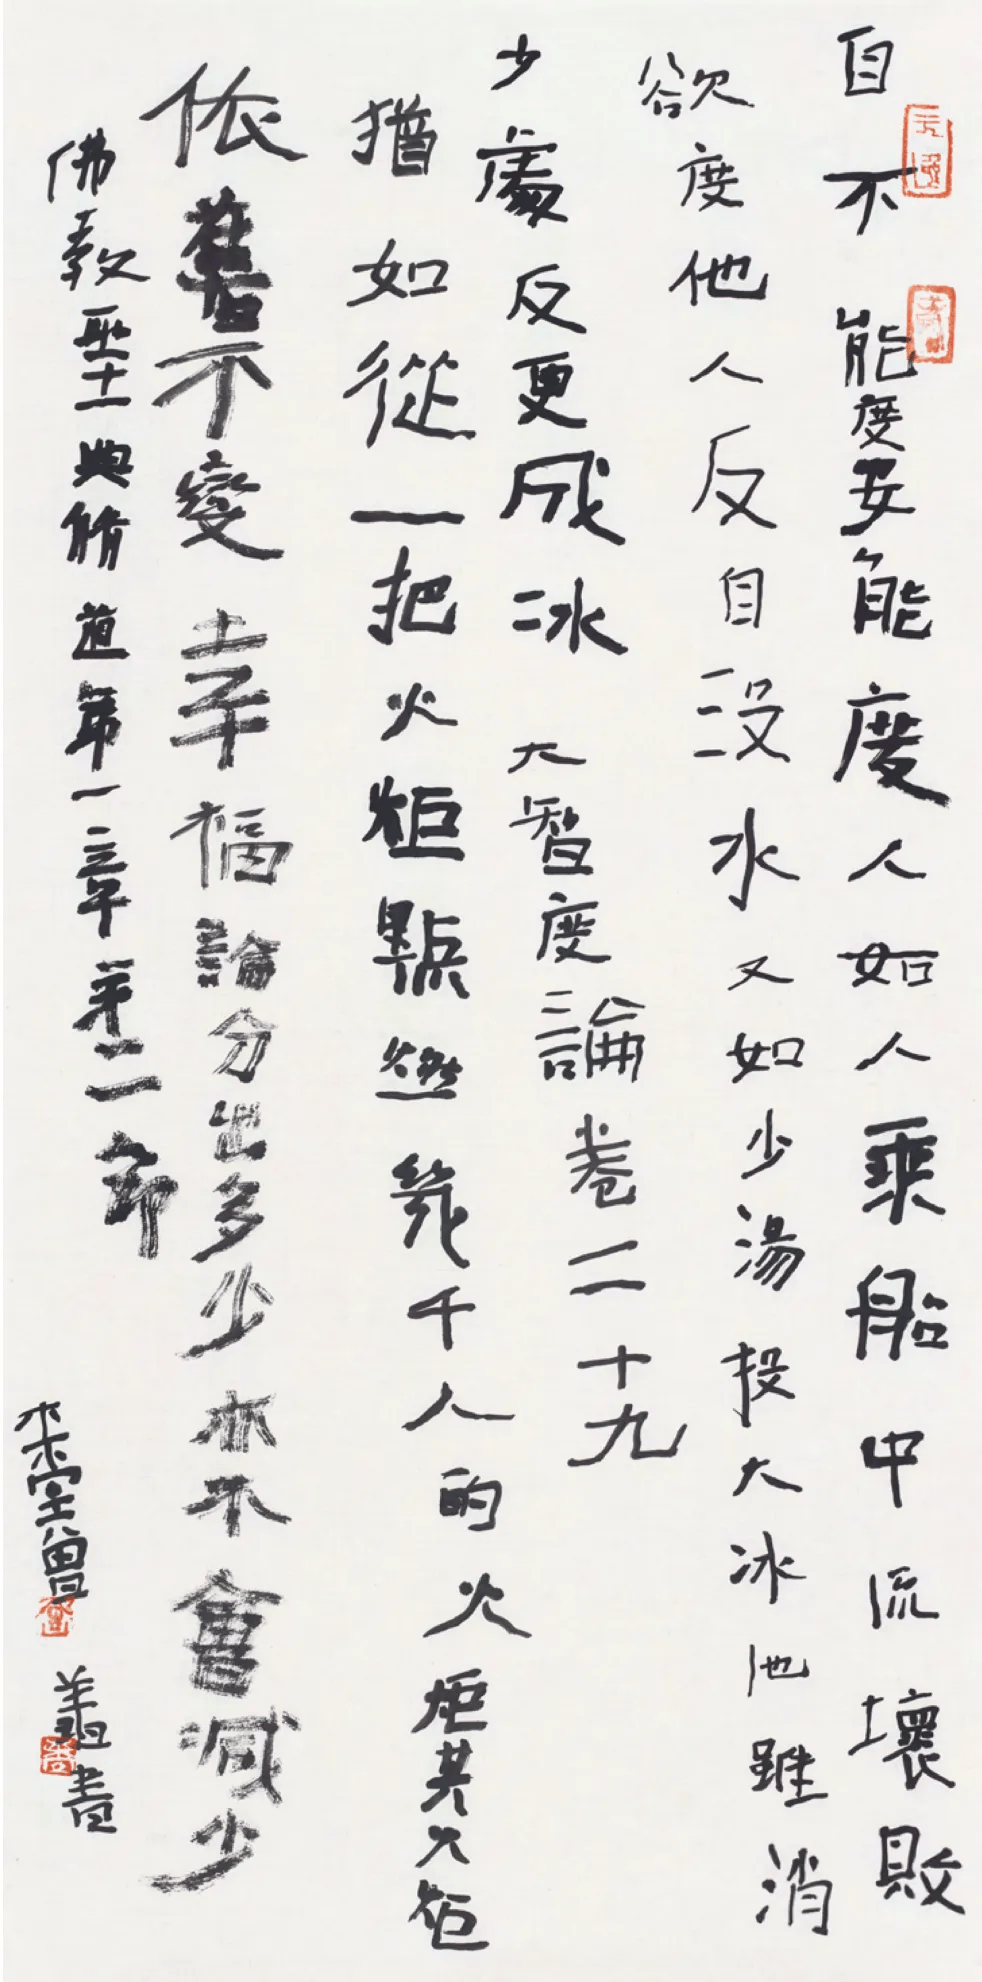 自不能度安能度人如人乘船中流壞敗
欲度他人反自没水又如少湯投大冰池雖消
少處反更成冰 大智度論卷二十九
猶如從一把火炬點燃幾千人的火炬其火炬
依舊不變幸福論分出多少亦不會減少
佛教聖典修道第一章第二節
來室曾 書